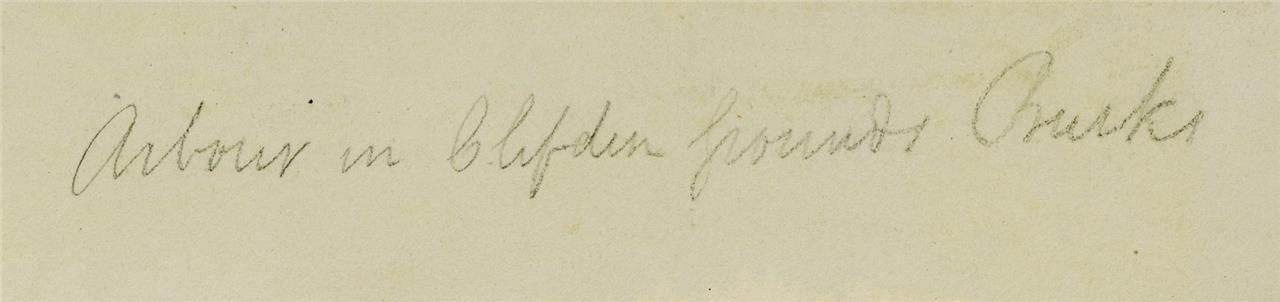 Arbour in Clifden grounds Bucks